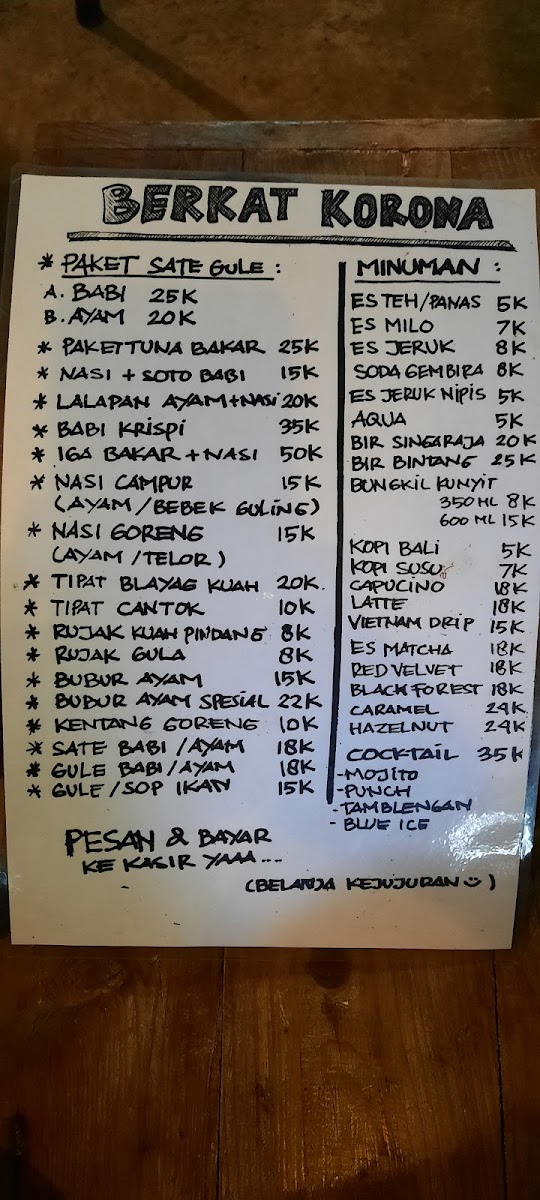 BERKAT KORONA
* PAKET SATE GULE :
A. BABI 25K
B. AYAM 20K
* PAKET TUNA BAKAR 25K
* NASI + SOTO BABI 15K
* LALAPAN AYAM+NASI 20K
* BABI KRISPI 35K
* IGA BAKAR + NASI 50K
* NASI CAMPUR 15K
(AYAM / BEBEK GULING)
* NASI GORENG 15K
(AYAM / TELOR)
* TIPAT BLAYAG KUAH 20K
* TIPAT CANTOK 10K
* RUJAK KUAH PINDANG 8K
* RUJAK GULA 8K
* BUBUR AYAM 15K
* BUBUR AYAM SPESIAL 22K
* KENTANG GORENG 10K
* SATE BABI / AYAM 18K
* GULE BABI / AYAM 18K
* GULE / SOP IKAN 15K
MINUMAN :
ES TEH/PANAS 5K
ES MILO 7K
ES JERUK 8K
SODA GEMBIRA 8K
ES JERUK NIPIS 5K
AQUA 5K
BIR SINGARAJA 20K
BIR BINTANG 25K
BUNGKIL KUNYIT
350 ML 8K
600 ML 15K
KOPI BALI 5K
KOPI SUSU 7K
CAPUCINO 18K
LATTE 18K
VIETNAM DRIP 15K
ES MATCHA 18K
RED VELVET 18K
BLACK FOREST 18K
CARAMEL 24K
HAZELNUT 24K
COCKTAIL 35K
- MOJITO
- PUNCH
- TAMBLENGAN
- BLUE ICE
PESAN & BAYAR
KE KASIR YAAA ...
(BELANJA KEJUJURAN ☺)